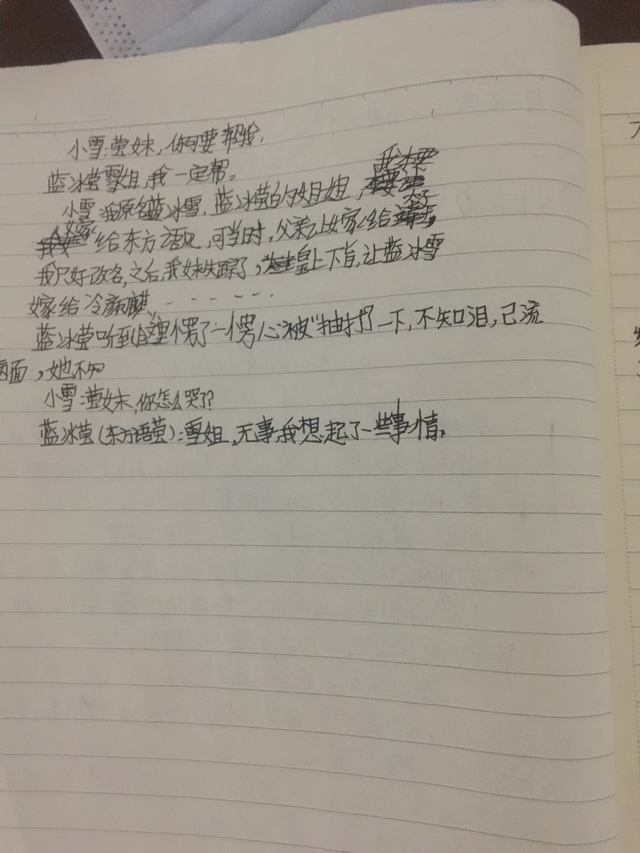 小雪:莹妹,你可要帮我.
蓝冰莹:雪姐,我一定帮。
小雪:我原名蓝冰雪.蓝冰莹的姐姐,
给东方语 ,可当时,父亲让嫁给
我只好改名,之后,我妹失踪了,皇上下旨,让蓝冰雪
嫁给冷 ......
蓝冰莹听到这里愣了一愣心被“抽打”了一下,不知泪,已流
满面,她不知
小雪:莹妹,你怎么哭了?
蓝冰莹(东方语莹):雪姐,无事,我想起了一些事情.